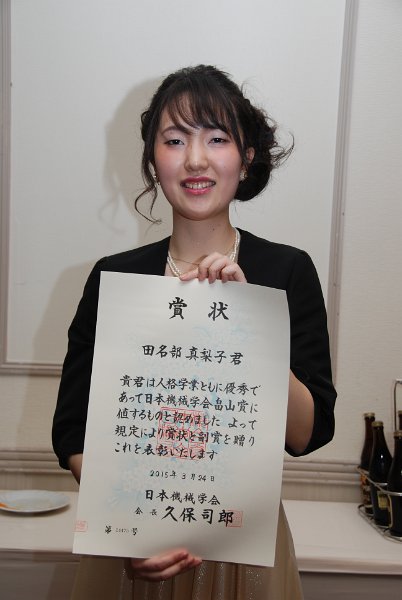 賞状
田名部 真梨子 君
貴君は人格学業ともに優秀で
あって日本機械学会畠山賞に
値するものと認めました よって
規定により賞状と副賞を贈り
これを表彰いたします
2015年3月24日
日本機械学会
会長 久保司郎
第 号